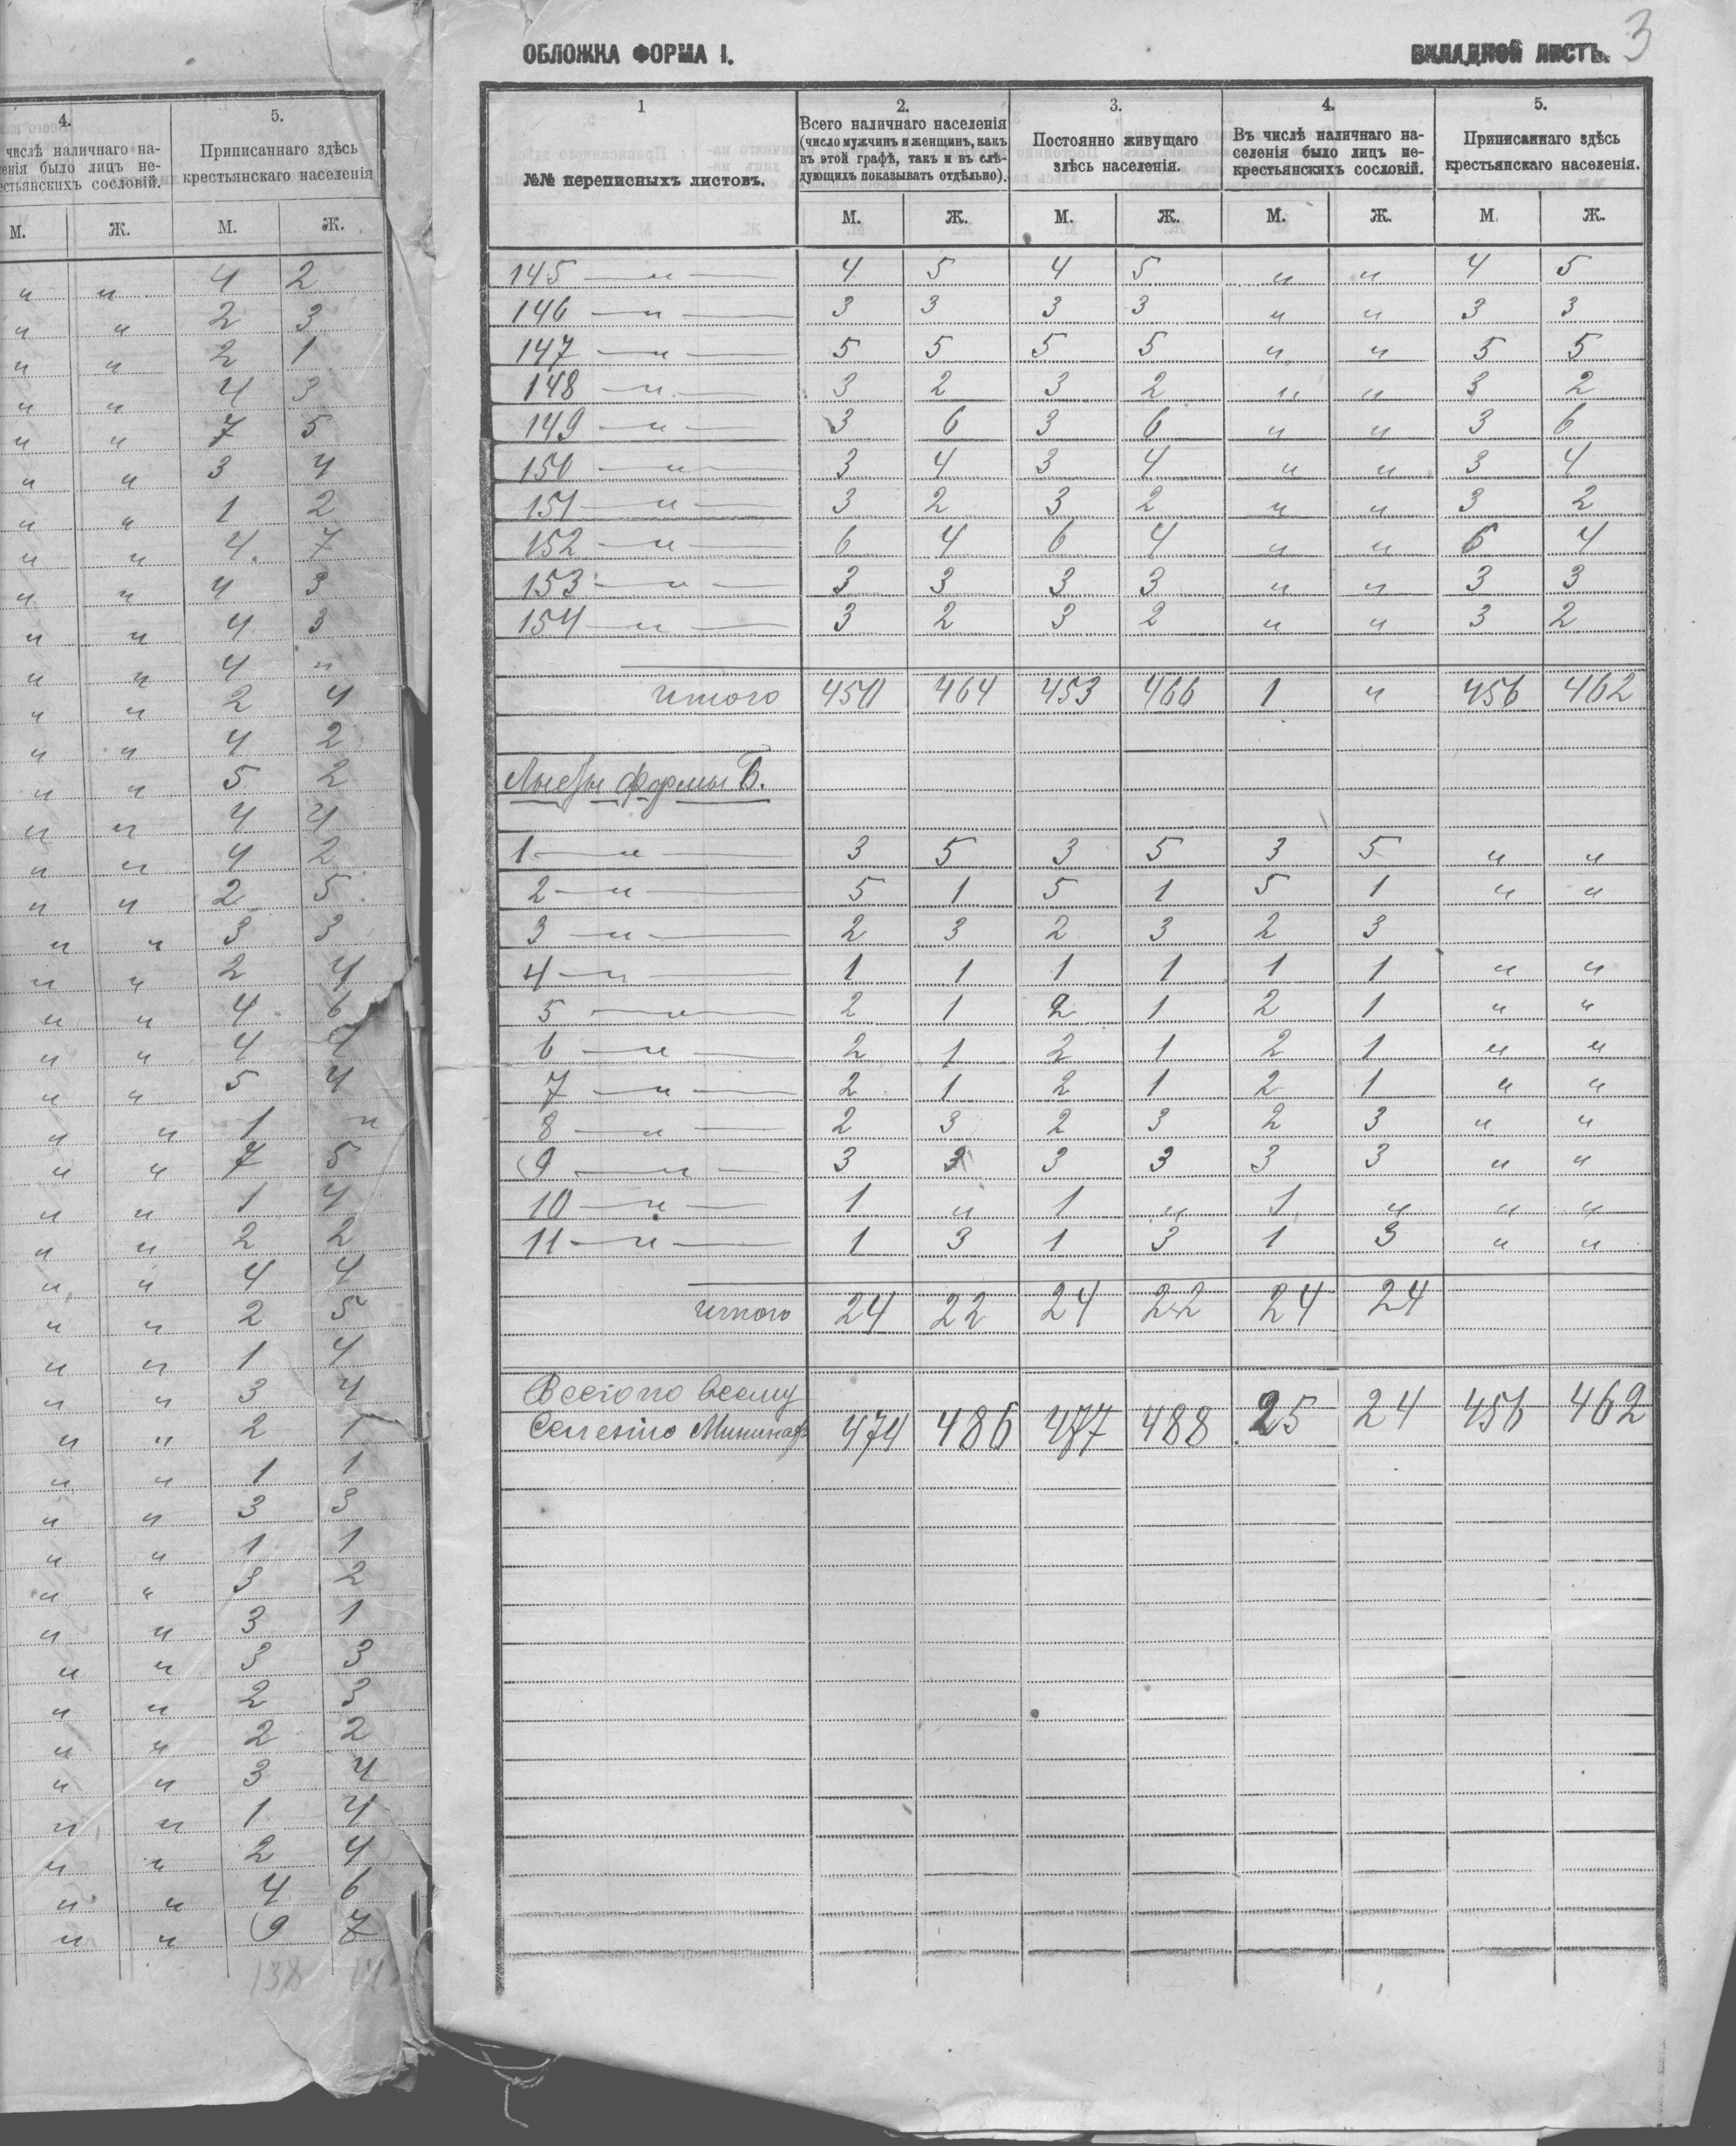 4. 5.
числѣ наличнаго на- Приписаннаго здѣсь
енія было лицъ не- крестьянскаго населенія
естьянскихъ сословій.
М. Ж. М. Ж.
" " 4 2
" " 2 3
" " 2 1
" " 4 3
" " 7 5
" " 3 4
" " 1 2
" " 4. 7
" " 4 3
" " 4 3
" " 4 "
" " 2 4
" " 4 2
" " 5 2
" " 4 4
" " 4 2
" " 2 5
" " 3 3
" " 2 4
" " 4 6
" " 4 4
" " 5 4
" " 1 "
" " 7 5
" " 1 4
" " 2 2
" " 4 4
" " 2 5
" " 1 4
" " 3 4
" " 2 1
" " 1 1
" " 3 3
" " 1 1
" " 3 2
" " 3 1
" " 3 3
" " 2 3
" " 2 2
" " 3 4
" " 1 4
" " 2 4
" " 4 6
" " 9 7
138
3
ОБЛОЖКА ФОРМА I. ВКЛАДНОЙ ЛИСТЪ.
1 2. 3. 4. 5.
№№ переписныхъ листовъ.
Всего наличнаго населенія
(число мужчинъ и женщинъ, какъ
въ этой графѣ, такъ и въ слѣ-
дующихъ показывать отдѣльно).
Постоянно живущаго
здѣсь населенія.
Въ числѣ наличнаго на-
селенія было лицъ не-
крестьянскихъ сословій.
Приписаннаго здѣсь
крестьянскаго населенія.
М. Ж. М. Ж. М. Ж. М. Ж.
145 — " — 4 5 4 5 " " 4 5
146 — " — 3 3 3 3 " " 3 3
147 — " — 5 5 5 5 " " 5 5
148 — " — 3 2 3 2 " " 3 2
149 — " — 3 6 3 6 " " 3 6
150 — " — 3 4 3 4 " " 3 4
151 — " — 3 2 3 2 " " 3 2
152 — " — 6 4 6 4 " " 6 4
153 — " — 3 3 3 3 " " 3 3
154 — " — 3 2 3 2 " " 3 2
итого 450 464 453 466 1 " 456 462
Листы формы Б.
1 — " — 3 5 3 5 3 5 " "
2 — " — 5 1 5 1 5 1 " "
3 — " — 2 3 2 3 2 3
4 — " — 1 1 1 1 1 1 " "
5 — " — 2 1 2 1 2 1 " "
6 — " — 2 1 2 1 2 1 " "
7 — " — 2 1 2 1 2 1 " "
8 — " — 2 3 2 3 2 3 " "
9 — " — 3 3 3 3 3 3 " "
10 — " — 1 " 1 " 1 " " "
11 — " — 1 3 1 3 1 3 " "
итого 24 22 24 22 24 24
Всего по всему
474 486 477 488 25 24 456 462